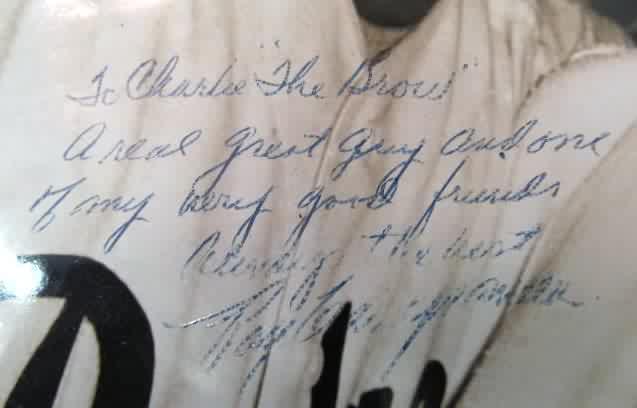 To Charlie "The Brow"
A real great guy and one
of my very good friends
Always the best
Roy Campanella
D